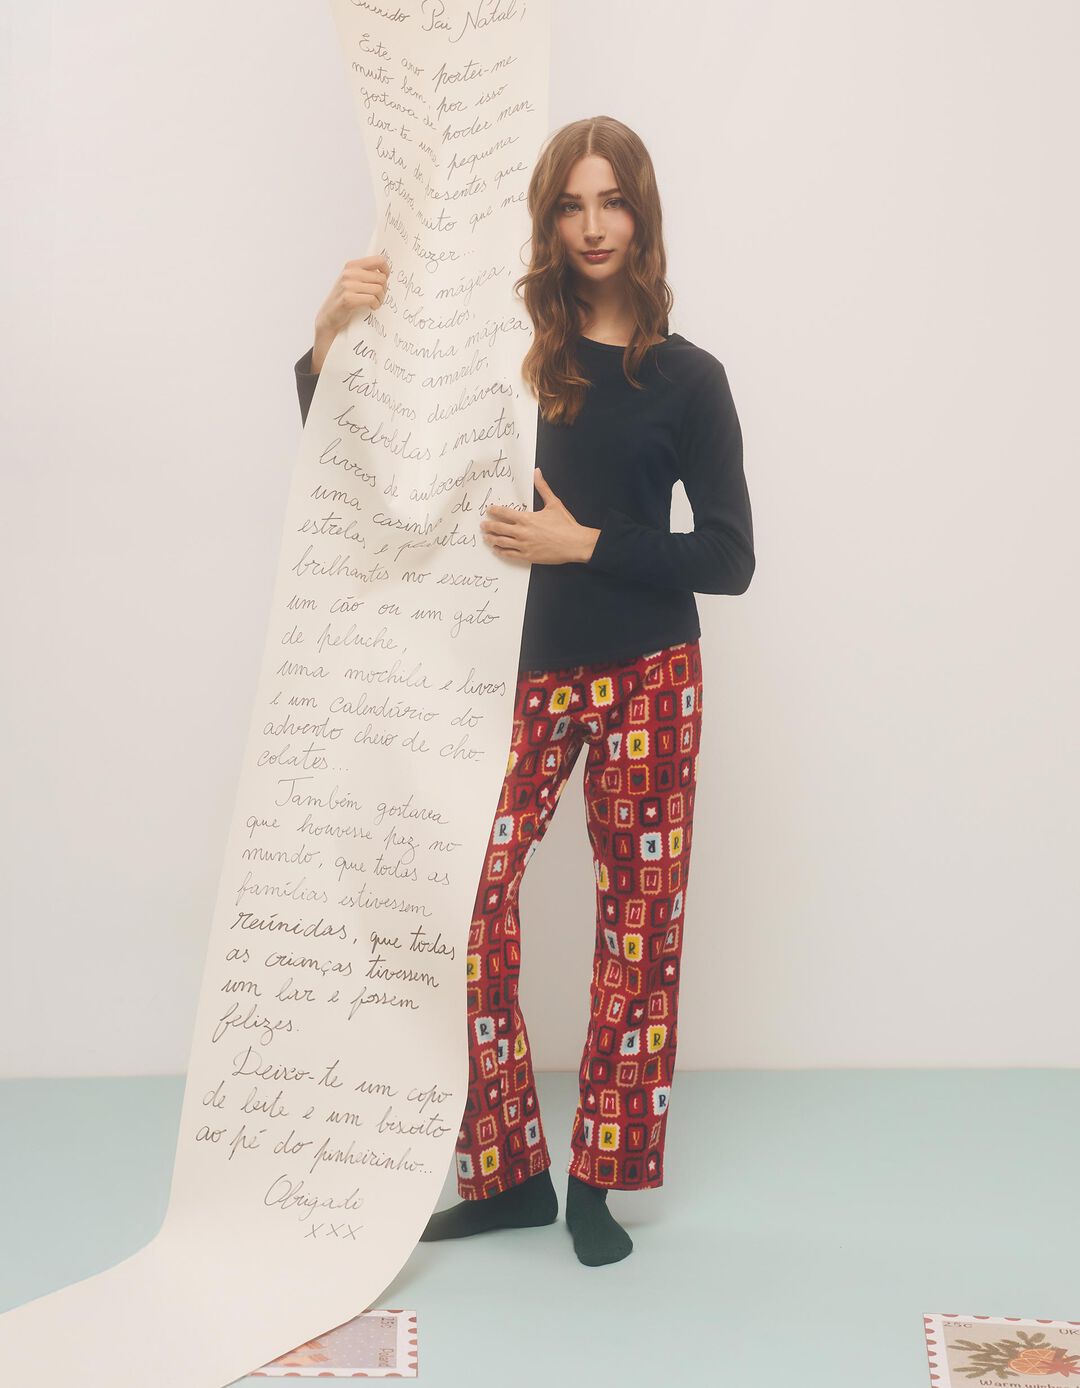 Querido Pai Natal;
Este ano portei-me
muito bem, por isso
gostava de poder man-
dar-te uma pequena
lista dos presentes que
gostava muito que me
pudesses trazer...
uma capa mágica,
coloridos,
uma varinha mágica,
um carro amarelo,
tatuagens decalcáveis,
borboletas e insectos,
livros de autocolantes,
uma casinha de brincar
estrelas e planetas
brilhantes no escuro,
um cão ou um gato
de peluche,
uma mochila e livros
e um calendário do
advento cheio de cho-
colates...
Também gostava
que houvesse paz no
mundo, que todas as
famílias estivessem
reúnidas, que todas
as crianças tivessem
um lar e fossem
felizes.
Deixo-te um copo
de leite e um biscoito
ao pé do pinheirinho...
Obrigado
XXX
MERRY
25c
Poland
25c
UK
Warm wishes